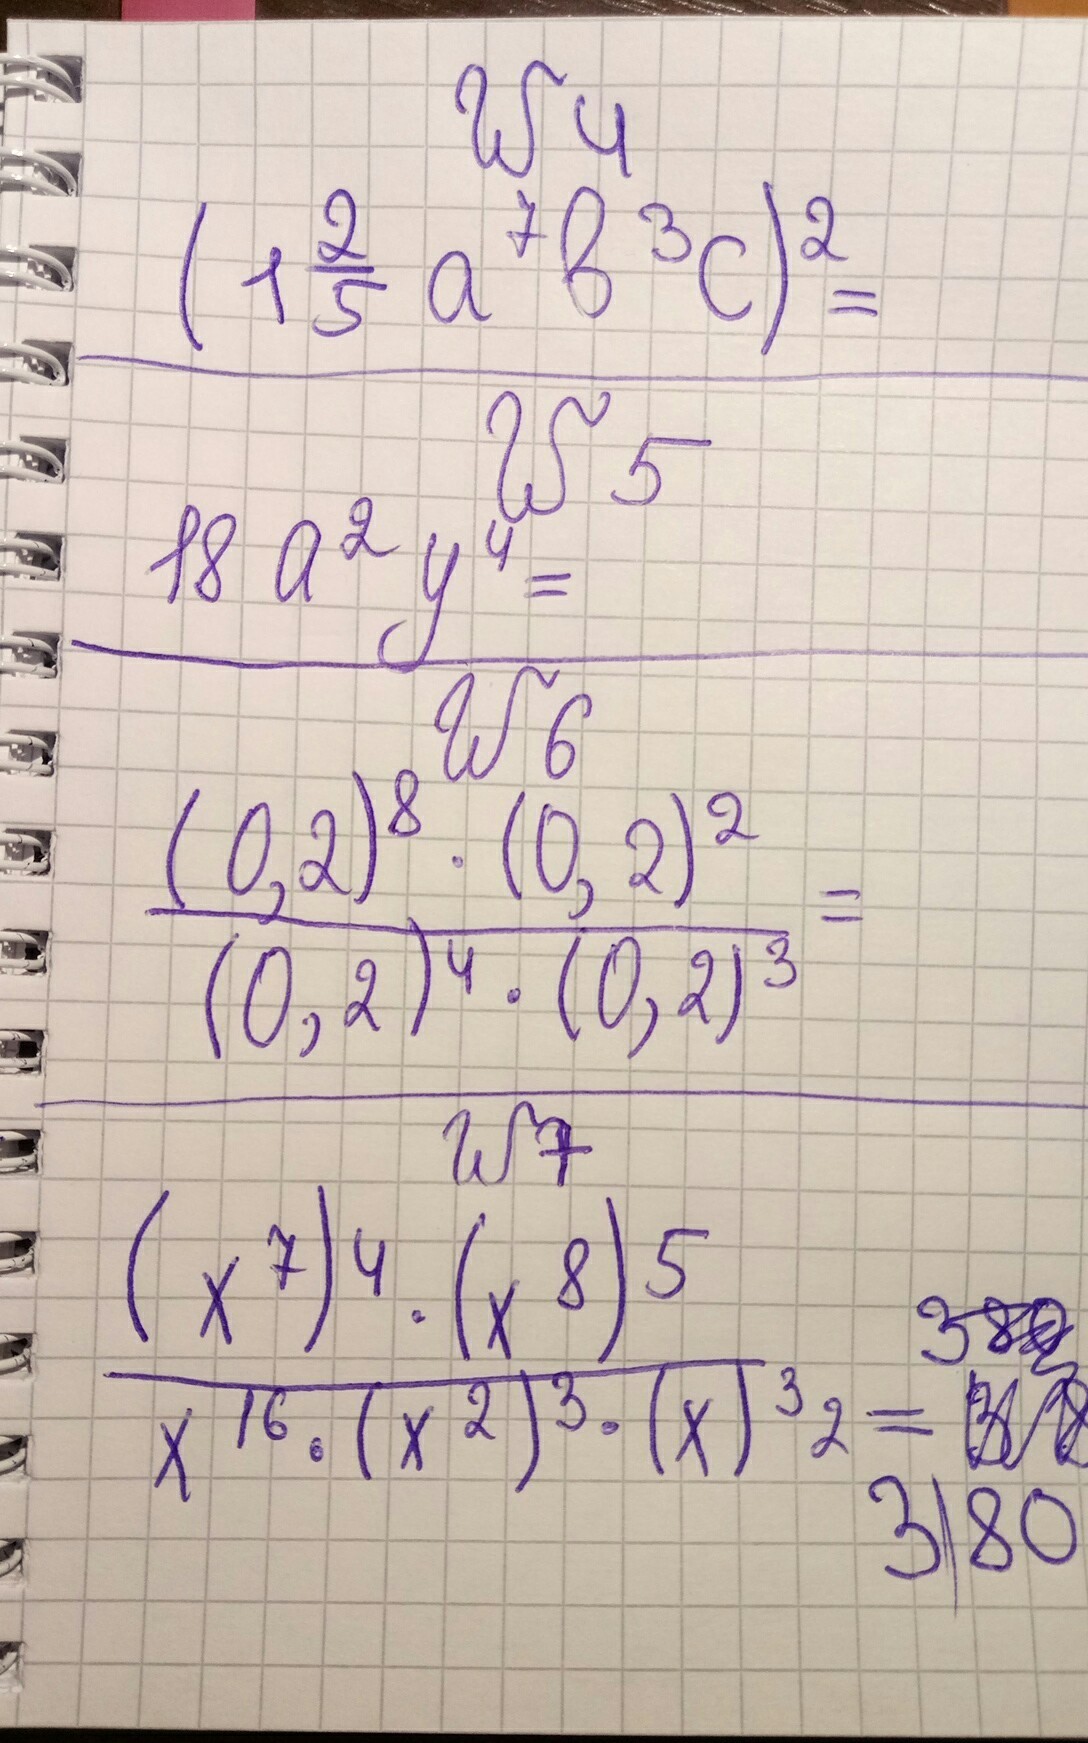 № 4
(1 2/5 a⁷b³c)² =
№ 5
18 a² y⁴ =
№ 6
(0,2)⁸ · (0,2)²
=
(0,2)⁴ · (0,2)³
№ 7
(x⁷)⁴ · (x⁸)⁵
x¹⁶ · (x²)³ · (x)³2 =
3|80